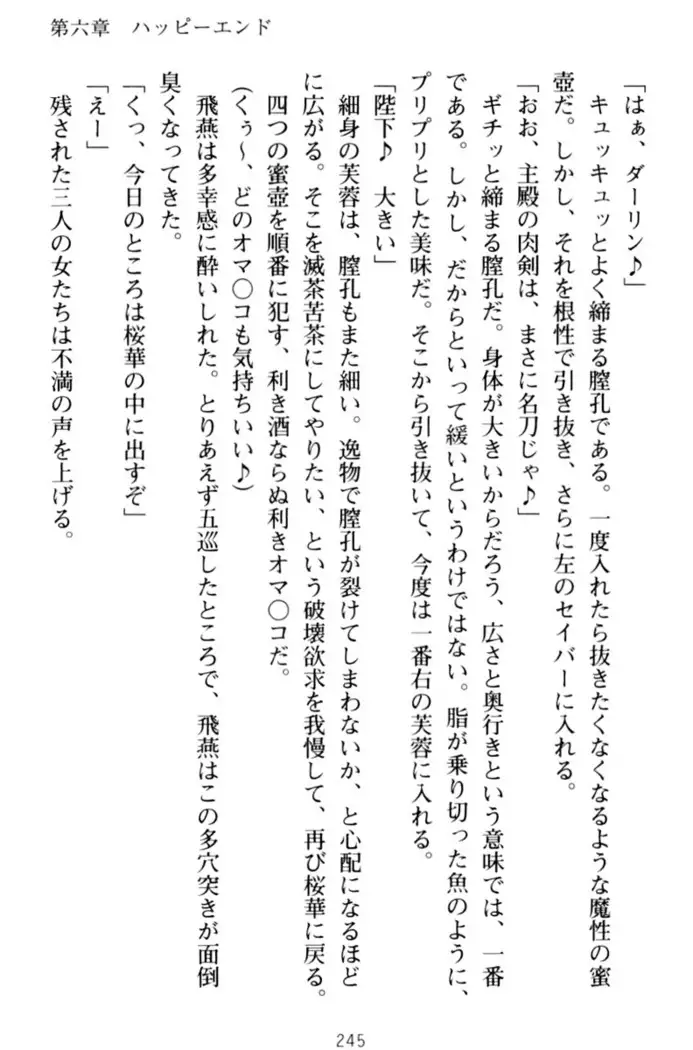 第六章　ハッピーエンド
「はぁ、ダーリン♪」
　キュッキュッとよく締まる膣孔である。一度入れたら抜きたくなくなるような魔性の蜜
壺だ。しかし、それを根性で引き抜き、さらに左のセイバーに入れる。
「おお、主殿の肉剣は、まさに名刀じゃ♪」
　ギチッと締まる膣孔だ。身体が大きいからだろう、広さと奥行きという意味では、一番
である。しかし、だからといって緩いというわけではない。脂が乗り切った魚のように、
プリプリとした美味だ。そこから引き抜いて、今度は一番右の芙蓉に入れる。
「陛下♪　大きい」
　細身の芙蓉は、膣孔もまた細い。逸物で膣孔が裂けてしまわないか、と心配になるほど
に広がる。そこを滅茶苦茶にしてやりたい、という破壊欲求を我慢して、再び桜華に戻る。
　四つの蜜壺を順番に犯す、利き酒ならぬ利きオマ〇コだ。
（くぅ〜、どのオマ〇コも気持ちいい♪）
　飛燕は多幸感に酔いしれた。とりあえず五巡したところで、飛燕はこの多穴突きが面倒
臭くなってきた。
「くっ、今日のところは桜華の中に出すぞ」
「えー」
　残された三人の女たちは不満の声を上げる。
245